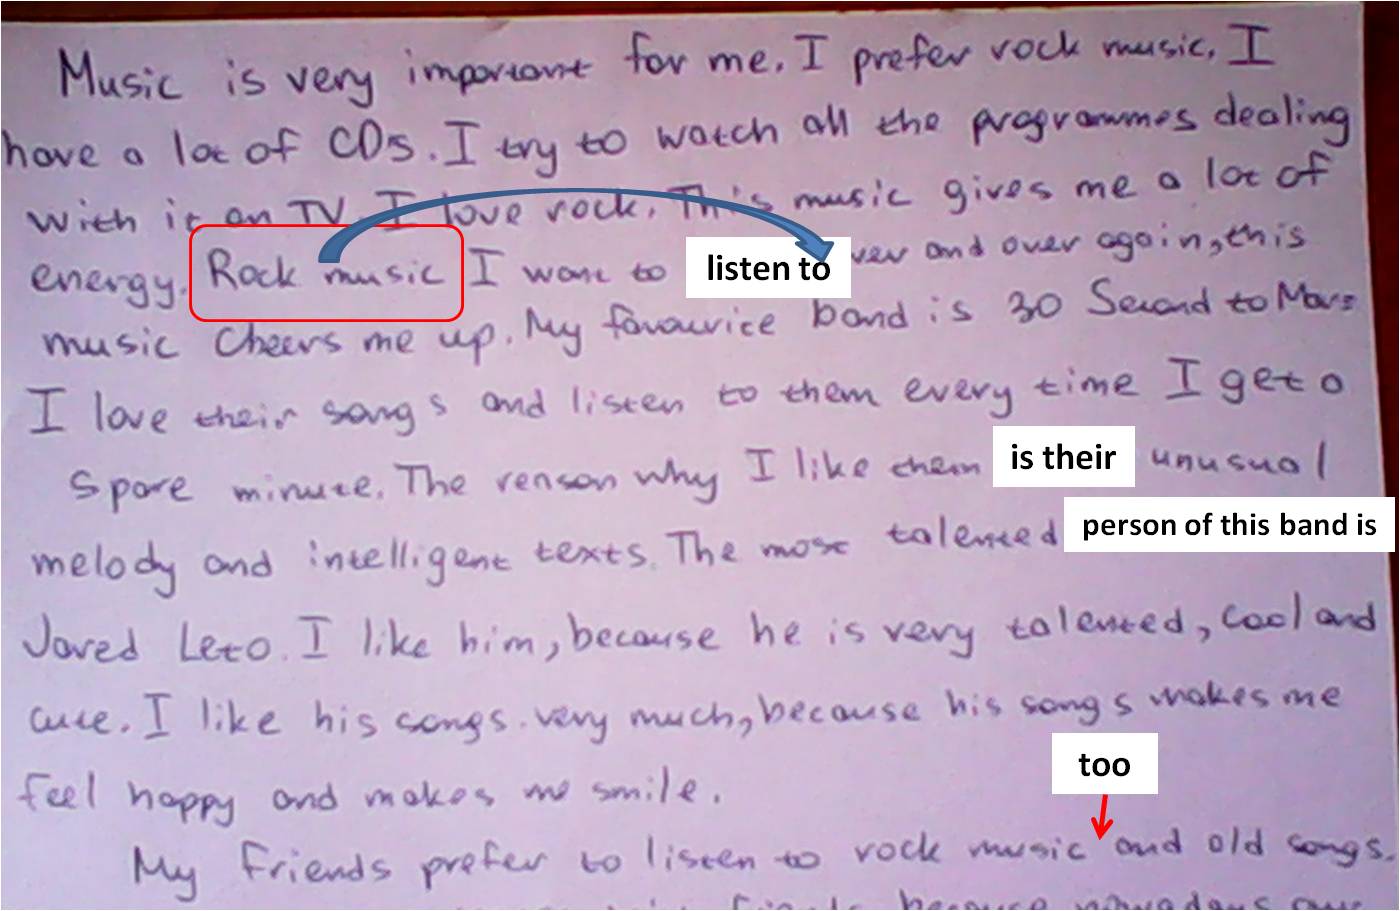 Music is very important for me. I prefer rock music. I
have a lot of CDs. I try to watch all the programmes dealing
with it on TV. I love rock. This music gives me a lot of
energy. Rock music I want to listen to over and over again, this
music cheers me up. My favourice band is 30 Second to Mars
I love their songs and listen to them every time I get a
spare minute. The renson why I like them is their unusual
melody and intelligent texts. The most talented person of this band is
Jared Leto. I like him, because he is very talented, cool and
cute. I like his songs very much, because his songs makes me
feel happy and makes me smile.
too
My friends prefer to listen to rock music and old songs.
friends because nowadays